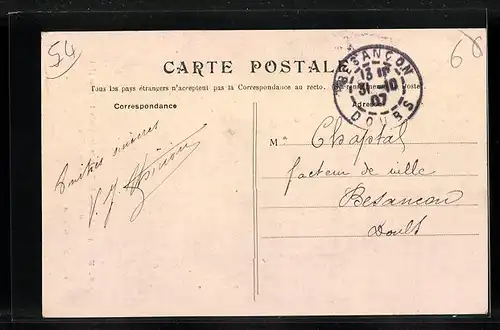 54
66
CARTE POSTALE
Tous les pays étrangers n'acceptent pas la Correspondance au recto.
Correspondance
BESANÇON
13
31 -10
07
DOUBS
Amitiés sincères
V. J.
M. Chaptal
facteur de ville
Besançon
Doubs